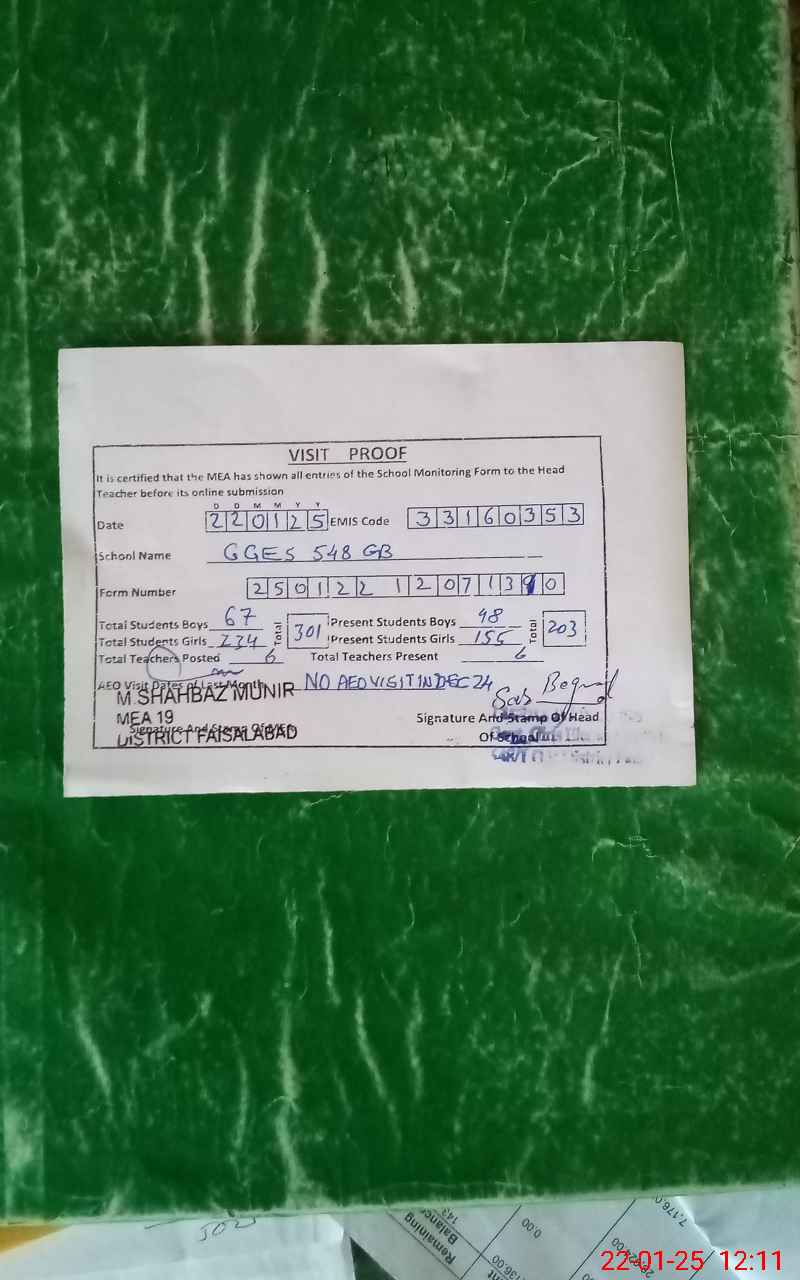 VISIT PROOF
It is certified that the MEA has shown all entries of the School Monitoring Form to the Head
Teacher before its online submission
D D M M Y Y
Date 220125 EMIS Code 33160353
School Name GGES 548 GB
Form Number 250122 1207130
Total Students Boys 67 Total 301 Present Students Boys 48 Total 203
Total Students Girls 234 Present Students Girls 155
Total Teachers Posted 6 Total Teachers Present 6
AEO Visit Dates of Last Month NO AEO VISIT IN DEC 24
M.SHAHBAZ MUNIR
MEA 19
Signature And Stamp Of MEA
DISTRICT FAISALABAD
Signature And Stamp Of Head
Of School
Remaining
Balance
143
0.00
7,176.0
22-01-25 12:11